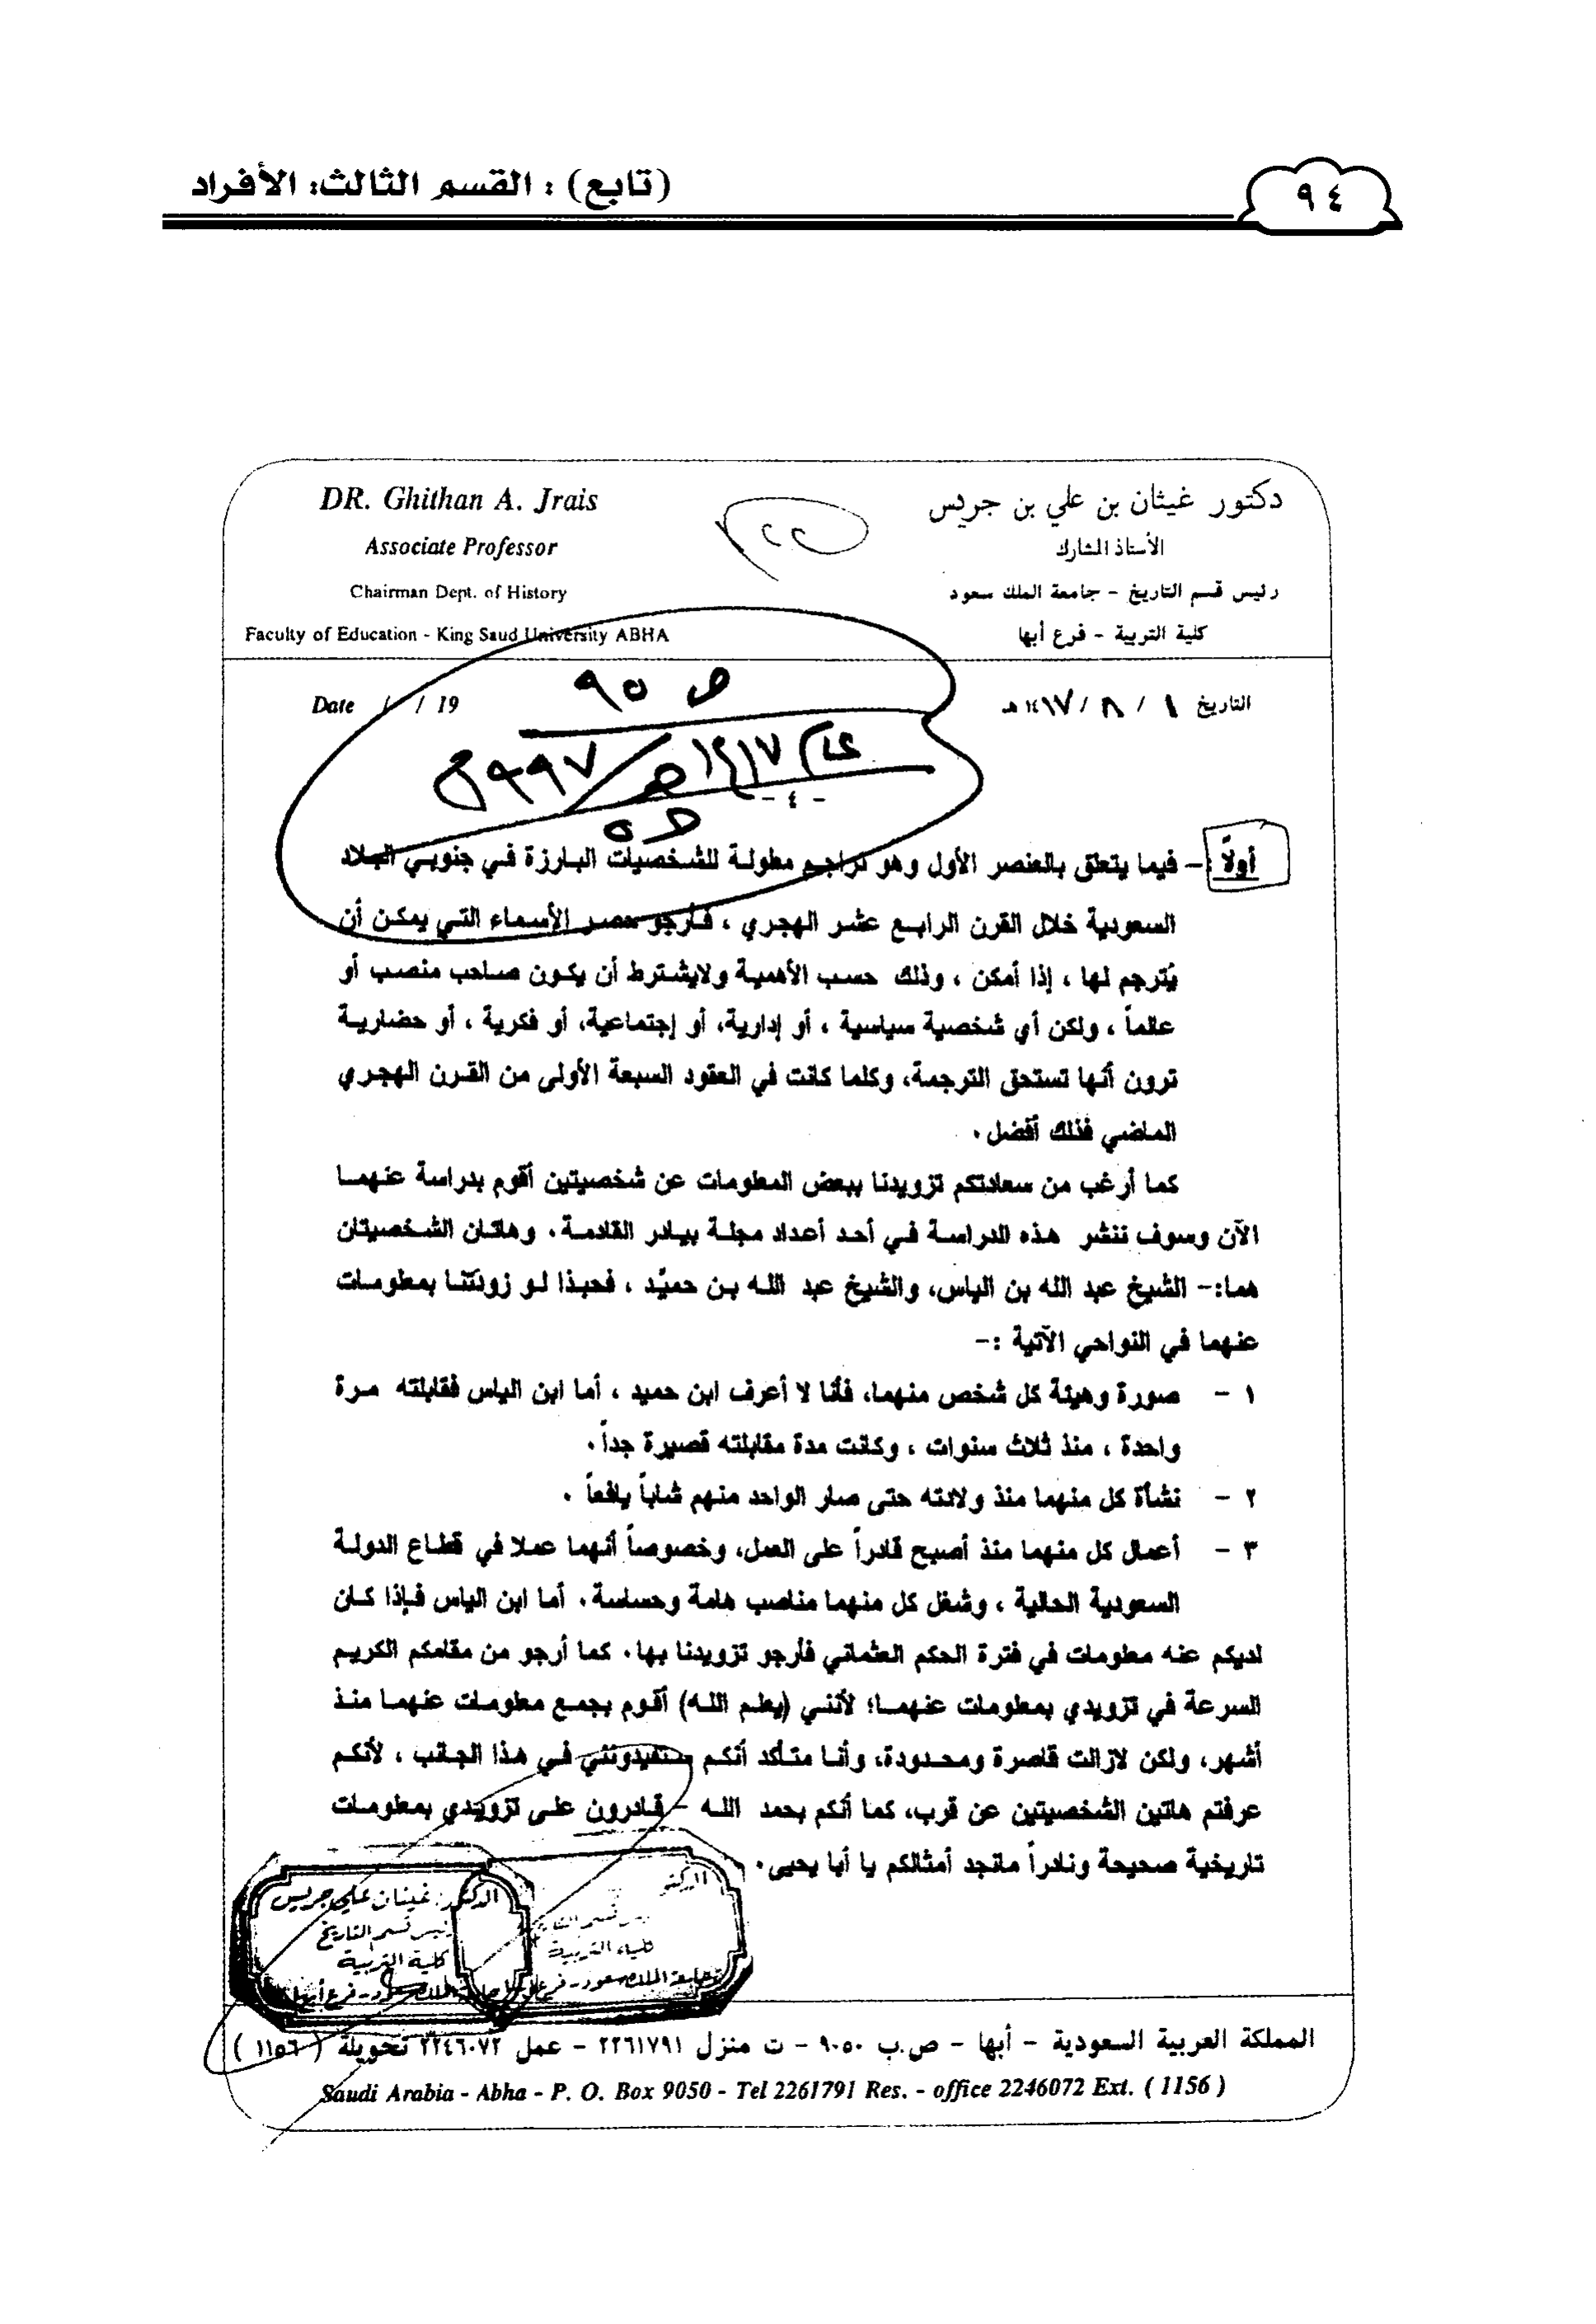 (تابع) : القسم الثالث: الأفراد
٩٤
دكتور غيثان بن علي بن جريس
الأستاذ المشارك
رئيس قسم التاريخ - جامعة الملك سعود
كلية التربية - فرع أبها
DR. Ghithan A. Jrais
Associate Professor
Chairman Dept. of History
Faculty of Education - King Saud University ABHA
التاريخ ١ / ٨ / ١٤١٧هـ
Date / / 19
ص ٩٥
- ٤ -
أولاً :- فيما يتعلق بالعنصر الأول وهو تراجم مطولة للشخصيات البارزة في جنوبي البلاد
السعودية خلال القرن الرابع عشر الهجري ، فأرجو حصر الأسماء التي يمكن أن
يُترجم لها ، إذا أمكن ، وذلك حسب الأهمية ولايشترط أن يكون صاحب منصب أو
عالماً ، ولكن أي شخصية سياسية ، أو إدارية، أو إجتماعية، أو فكرية ، أو حضارية
ترون أنها تستحق الترجمة، وكلما كانت في العقود السبعة الأولى من القرن الهجري
الماضي فذلك أفضل .
كما أرغب من سعادتكم تزويدنا ببعض المعلومات عن شخصيتين أقوم بدراسة عنهما
الآن وسوف ننشر هذه الدراسة في أحد أعداد مجلة بيادر القادمة . وهاتان الشخصيتان
هما:- الشيخ عبد الله بن الياس، والشيخ عبد الله بن حميّد ، فحبذا لو زودتنا بمعلومات
عنهما في النواحي الآتية :-
١ - صورة وهيئة كل شخص منهما، فأنا لا أعرف ابن حميد ، أما ابن الياس فقابلته مرة
واحدة ، منذ ثلاث سنوات ، وكانت مدة مقابلته قصيرة جداً .
٢ - نشأة كل منهما منذ ولادته حتى صار الواحد منهم شاباً يافعاً .
٣ - أعمال كل منهما منذ أصبح قادراً على العمل، وخصوصاً أنهما عملا في قطاع الدولة
السعودية الحالية ، وشغل كل منهما مناصب هامة وحساسة . أما ابن الياس فإذا كان
لديكم عنه معلومات في فترة الحكم العثماني فأرجو تزويدنا بها . كما أرجو من مقامكم الكريم
السرعة في تزويدي بمعلومات عنهما؛ لأنني (يعلم الله) أقوم بجمع معلومات عنهما منذ
أشهر، ولكن لازالت قاصرة ومحدودة، وأنا متأكد أنكم ستفيدونني في هذا الجانب ، لأنكم
عرفتم هاتين الشخصيتين عن قرب، كما أنكم بحمد الله - قادرون على تزويدي بمعلومات
تاريخية صحيحة ونادراً مانجد أمثالكم يا أبا يحيى .
الدكتور
كلية التربية
جامعة الملك سعود - فرع أبها
الدكتور: غيثان علي جريس
رئيس قسم التاريخ
كلية التربية
الملك سعود - فرع أبها
المملكة العربية السعودية - أبها - ص.ب ٩٠٥٠ - ت منزل ٢٢٦١٧٩١ - عمل ٢٢٤٦٠٧٢ تحويلة ( ١١٥٦ )
Saudi Arabia - Abha - P. O. Box 9050 - Tel 2261791 Res. - office 2246072 Ext. ( 1156 )